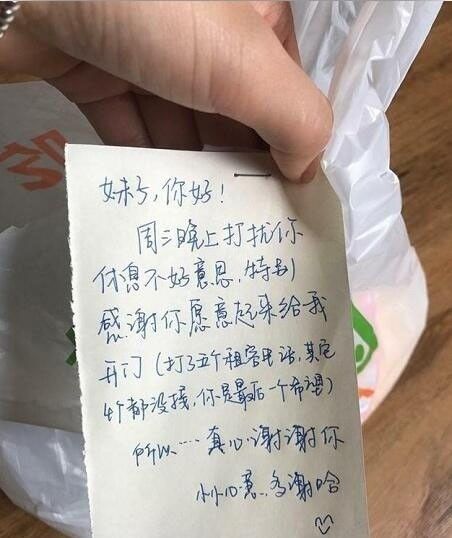 妹子，你好！
周二晚上打扰你
休息不好意思，特别
感谢你愿意起来给我
开门（打了五个租客电话，其它
4个都没接，你是最后一个希望）
所以……真心谢谢你
小小心意，多谢哈